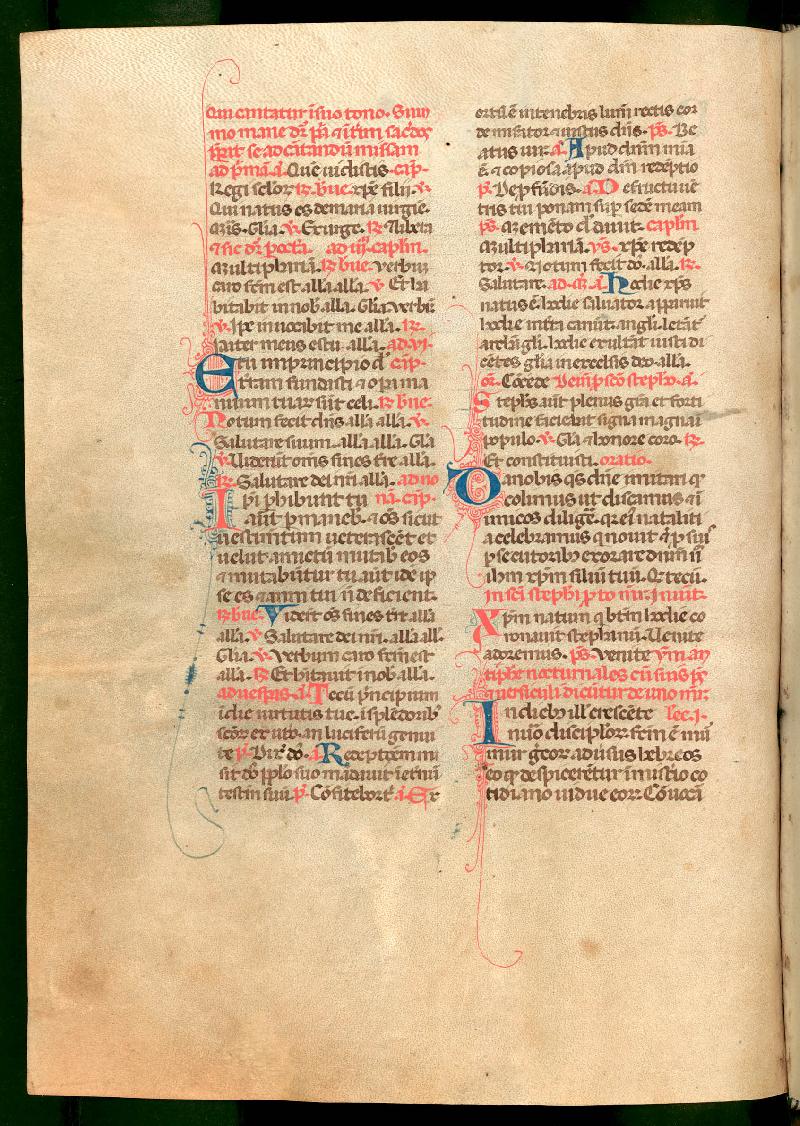 Qui cantatur ī suo tono. Sum
mo mane dr̄ pͣ ⁊ itr̄m sac̄dos
ad pͥmā. a. Quē uidistis. cap.
Regi sclor̄. ꝶ. bue. xp̄e filii. ꝟ.
Qui natus es de maria uirgie.
Gl̄ia. ꝟ. Exurge. ꝶ. ⁊ libera
⁊ sic dr̄ ad iii. caplm.
Multiphariā. ꝶ. bue. Verbuȝ
caro fcm̄ est all'a all'a. ꝟ. Et ha
bitabit in nob̄. all'a. Gl̄ia. Verbū
ꝟ. Ip̄e inuocabit me all'a. ꝶ.
pater meus es tu. all'a. ad vi.
Et tu in principio d' cap.
t̄ram fundasti ⁊ opa ma
nuum tuar̄ sūt celi. ꝶ. bue.
Notum fecit dn̄s all'a all'a. ꝟ.
Salutare suum. all'a all'a. Gl̄a
ꝟ. Uiderūt om̄s fines tr̄e all'a.
ꝶ. Salutare dei nr̄i all'a. ad no
Ip̄i p̄hibunt tu nā. cap.
aūt p̄maneb̄. ⁊ os̄ sicut
uestimtum ueterascēt et
uelut amictū mutab̄ eos
⁊ mutabūtur tu aūt idē ip̄
se es ⁊ anni tui n̄ deficient.
ꝶ. bue. Viderūt os̄ fines tr̄e all'a
all'a. ꝟ. Salutare dei nr̄i. all'a all'.
Gl̄ia. ꝟ. Verbum caro fcm̄ est
all'a. ꝶ. Et bitauit i nob̄. all'a.
ad uesp̄as. a. Tecū p̄ncipium
ī die uirtutis tue. ī splēdorib̄
scōr̄ ex uto. an̄ luciferū genui
te. p̄. Dix̄ do. a. Redeptōem mi
sit do. pplo suo mādauit ī et̄nū
testm̄ suū. p̄. Cōfitebort. a. Ex
ortū ē in tenebris lum̄ rectis cor
de mis̄ator ⁊ iustus dn̄s. ps. Be
atus uir. a. Apud dnm̄ mīa
ē ⁊ copiosa apud dm̄ redēptio
p̄. De pfūdis. a. De fructu uē
tris tui ponam sup̄ sedē meam
ps. Memēto d' dauit. caplm
Multiphariā. ꝟs. xp̄e redēp
tor. ꝟ. Notum fecit do. all'a. ꝶ.
Salutare. ad. m̄. a. Hodie xp̄s
natus ē hodie saluator apparuit
hodie in tr̄i canūt angl̄i. letāt̄
archāgl̄i. hodie exultāt iusti di
cētes gl̄ia in excelsis deo. all'a.
or̄. Cōcede. Stepho. a.
Stephs aūt plenus grā et forti
tudine faciebat signa magna ī
populo. ꝟ. Gl̄a ⁊ honore coro. ꝶ.
Et constituisti. oratio.
Da nobis qs̄ dn̄e imitari qͦ
colimus ut discamus ⁊ ī
imicos diligē. qr ei natalīti
a celebramus q nouit ⁊ p̄ suiˢ
p̄secutorib̄ exorare dnm̄ n̄m
ihm̄ xp̄m filiū tuū. Q. tecū.
In scī stephi p̄to mr̄. inuit.
Xp̄m natum q btm̄ hodie co
ronauit stephanū. Uenite
adoremus. ps. Venite.
tiphe nocturnales cū suis ps̄
⁊ uersiculi dicūtur de uno mr̄.
In dieb̄ ill' crescēte lec. i.
nuo disciplor̄ fcm̄ ē mū
mur gcor̄ adusus hebreos
eo qͩ despicerētur ī mīstio co
tidiano uidue eor̄. Cōuocā